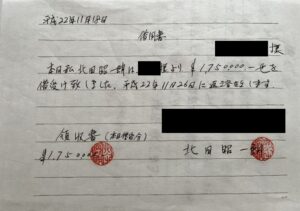 平成22年11月19日
借用書
様
本日私 北田昭一郎は、 様より ¥1,750,000-也を
借受け致しました。平成22年11月26日に返済致します
領収書
¥1,750,000
北田 昭一郎